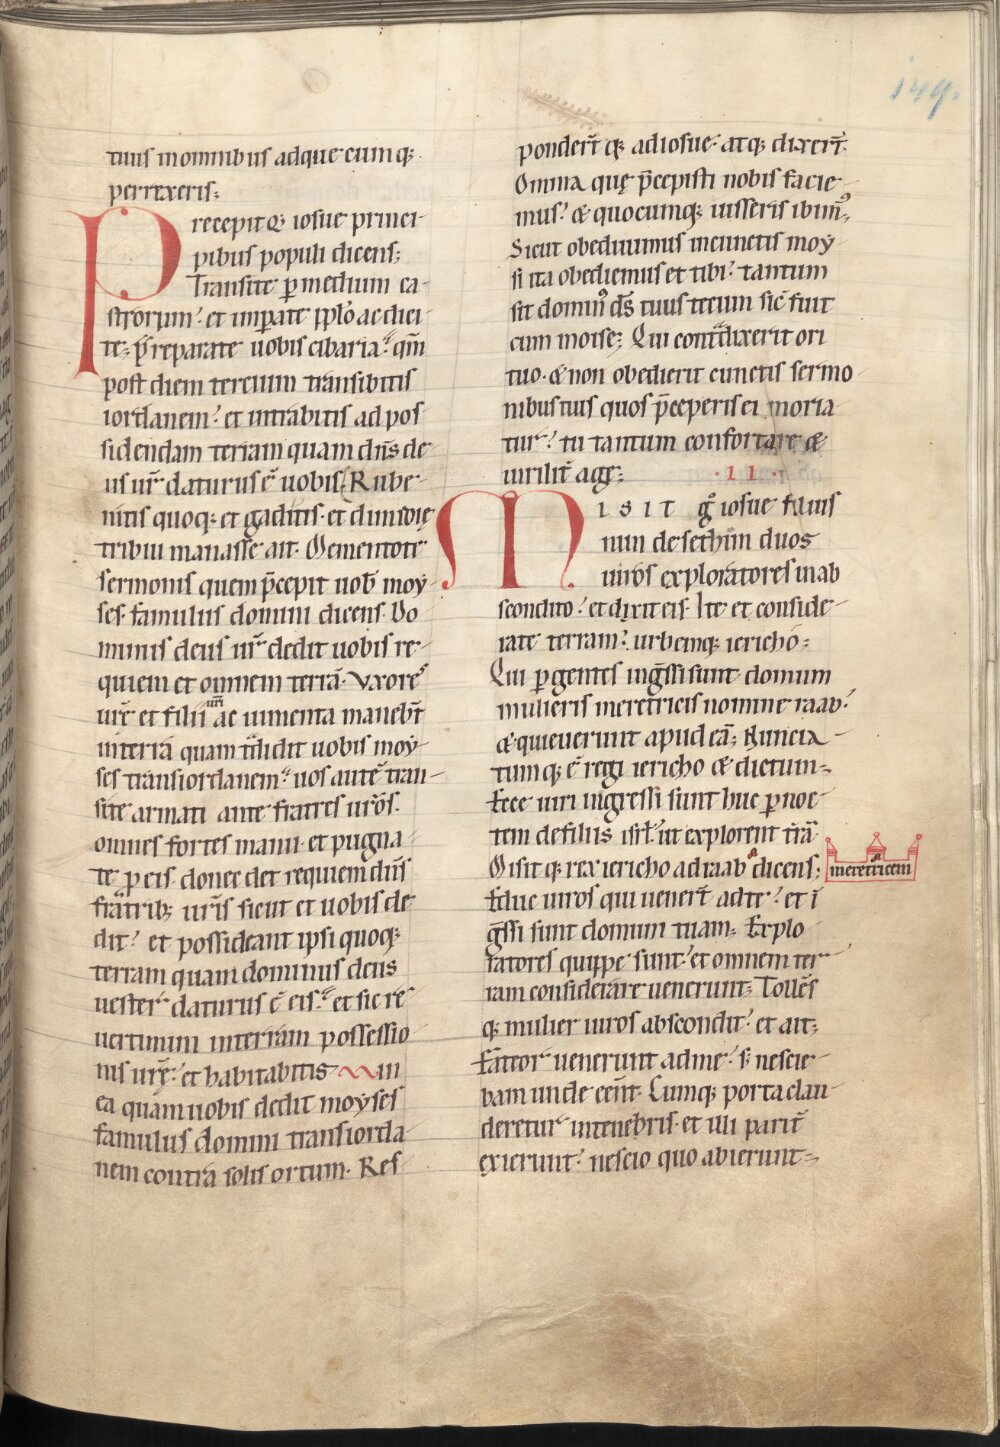 149.
tuis in omnibus ad que cumq;
perrexeris;
Precepitq; iosue princi-
pibus populi dicens;
Transite p̱ medium ca-
strorum? et imp̱ate pp̄lo ac dici-
te; p̄reparate uobis cibaria? qm̄
post diem tercium transibitis
iordanem? et intrabitis ad pos
sidendam terram quam dn̄s de-
us ur̄ daturus ē uobis. Rube-
nitis quoq; et gaditis. et dimidię
tribui manasse ait. Mementote
sermonis quem p̄cepit uob̄ moy-
ses. famulus domini dicens. Do
minus deus ur̄ dedit uobis re-
quiem et omnem terrā. Vxore᷒
ur̄ę et filii urī ac iumenta maneb̄t
in terra quam t̄didit uobis moy-
ses transiordanem? uos autē tran-
site armati ante fratres ur̄os.
omnes fortes manu. et pugna-
te p̱ eis. donec det requiem dn̄s
fratrib; ur̄is sicut et uobis de-
dit? et possideant ipsi quoq;
terram quam dominus deus
uester daturus ē eis? et sic re
uertimini in terram possessio
nis ur̄ę? et habitabitis in
ea quam uobis dedit moyses
famulus domini transiorda-
nem contra solis ortum. Res
ponder̄t q; ad iosue. atq; dixer̄t.
Omnia quę p̄cepisti nobis facie-
mus? & quocumq; iusseris ibim᷒;
Sicut obediuimus in cunctis moy-
si ita obediemus et tibi? tantum
sit domin᷒ ds̄ tuus tecum sic̄ fuit
cum moise; Qui cont̄dixerit ori
tuo. & non obedierit cunctis sermo-
nibus tuis quos p̄ceperis ei moria
tur? tu tantum confortare &
uirilit̄ age; ·II·
MISIT g̊ iosue filius
nun de sethim duos
uiros exploratores in ab
scondito? et dixit eis. Ite et conside-
rate terram? urbemq; iericho;
Qui p̱gentes ing̃ssi sunt domum
mulieris meretricis nomine raab?
& quieuerunt apud eā; Nuncia-
tumq; ē regi iericho & dictum;
Ecce uiri ingressi sunt huc p̱ noc-
tem de filiis isrl̄. ut explorent tr̄ā
Misitq; rex iericho ad raab dicens;
meretricem
Educ uiros qui uener̄t ad te? et ī
g̃ssi sunt domum tuam; Explo
ratores quippe sunt? et omnem ter-
ram considerare uenerunt; Tollēs
q; mulier uiros abscondit? et ait;
Fateor uenerunt ad me? s; nescie-
bam unde eēnt. Cumq; porta clau-
deretur in tenebris. et illi parit̄
exierunt? nescio quo abierunt;